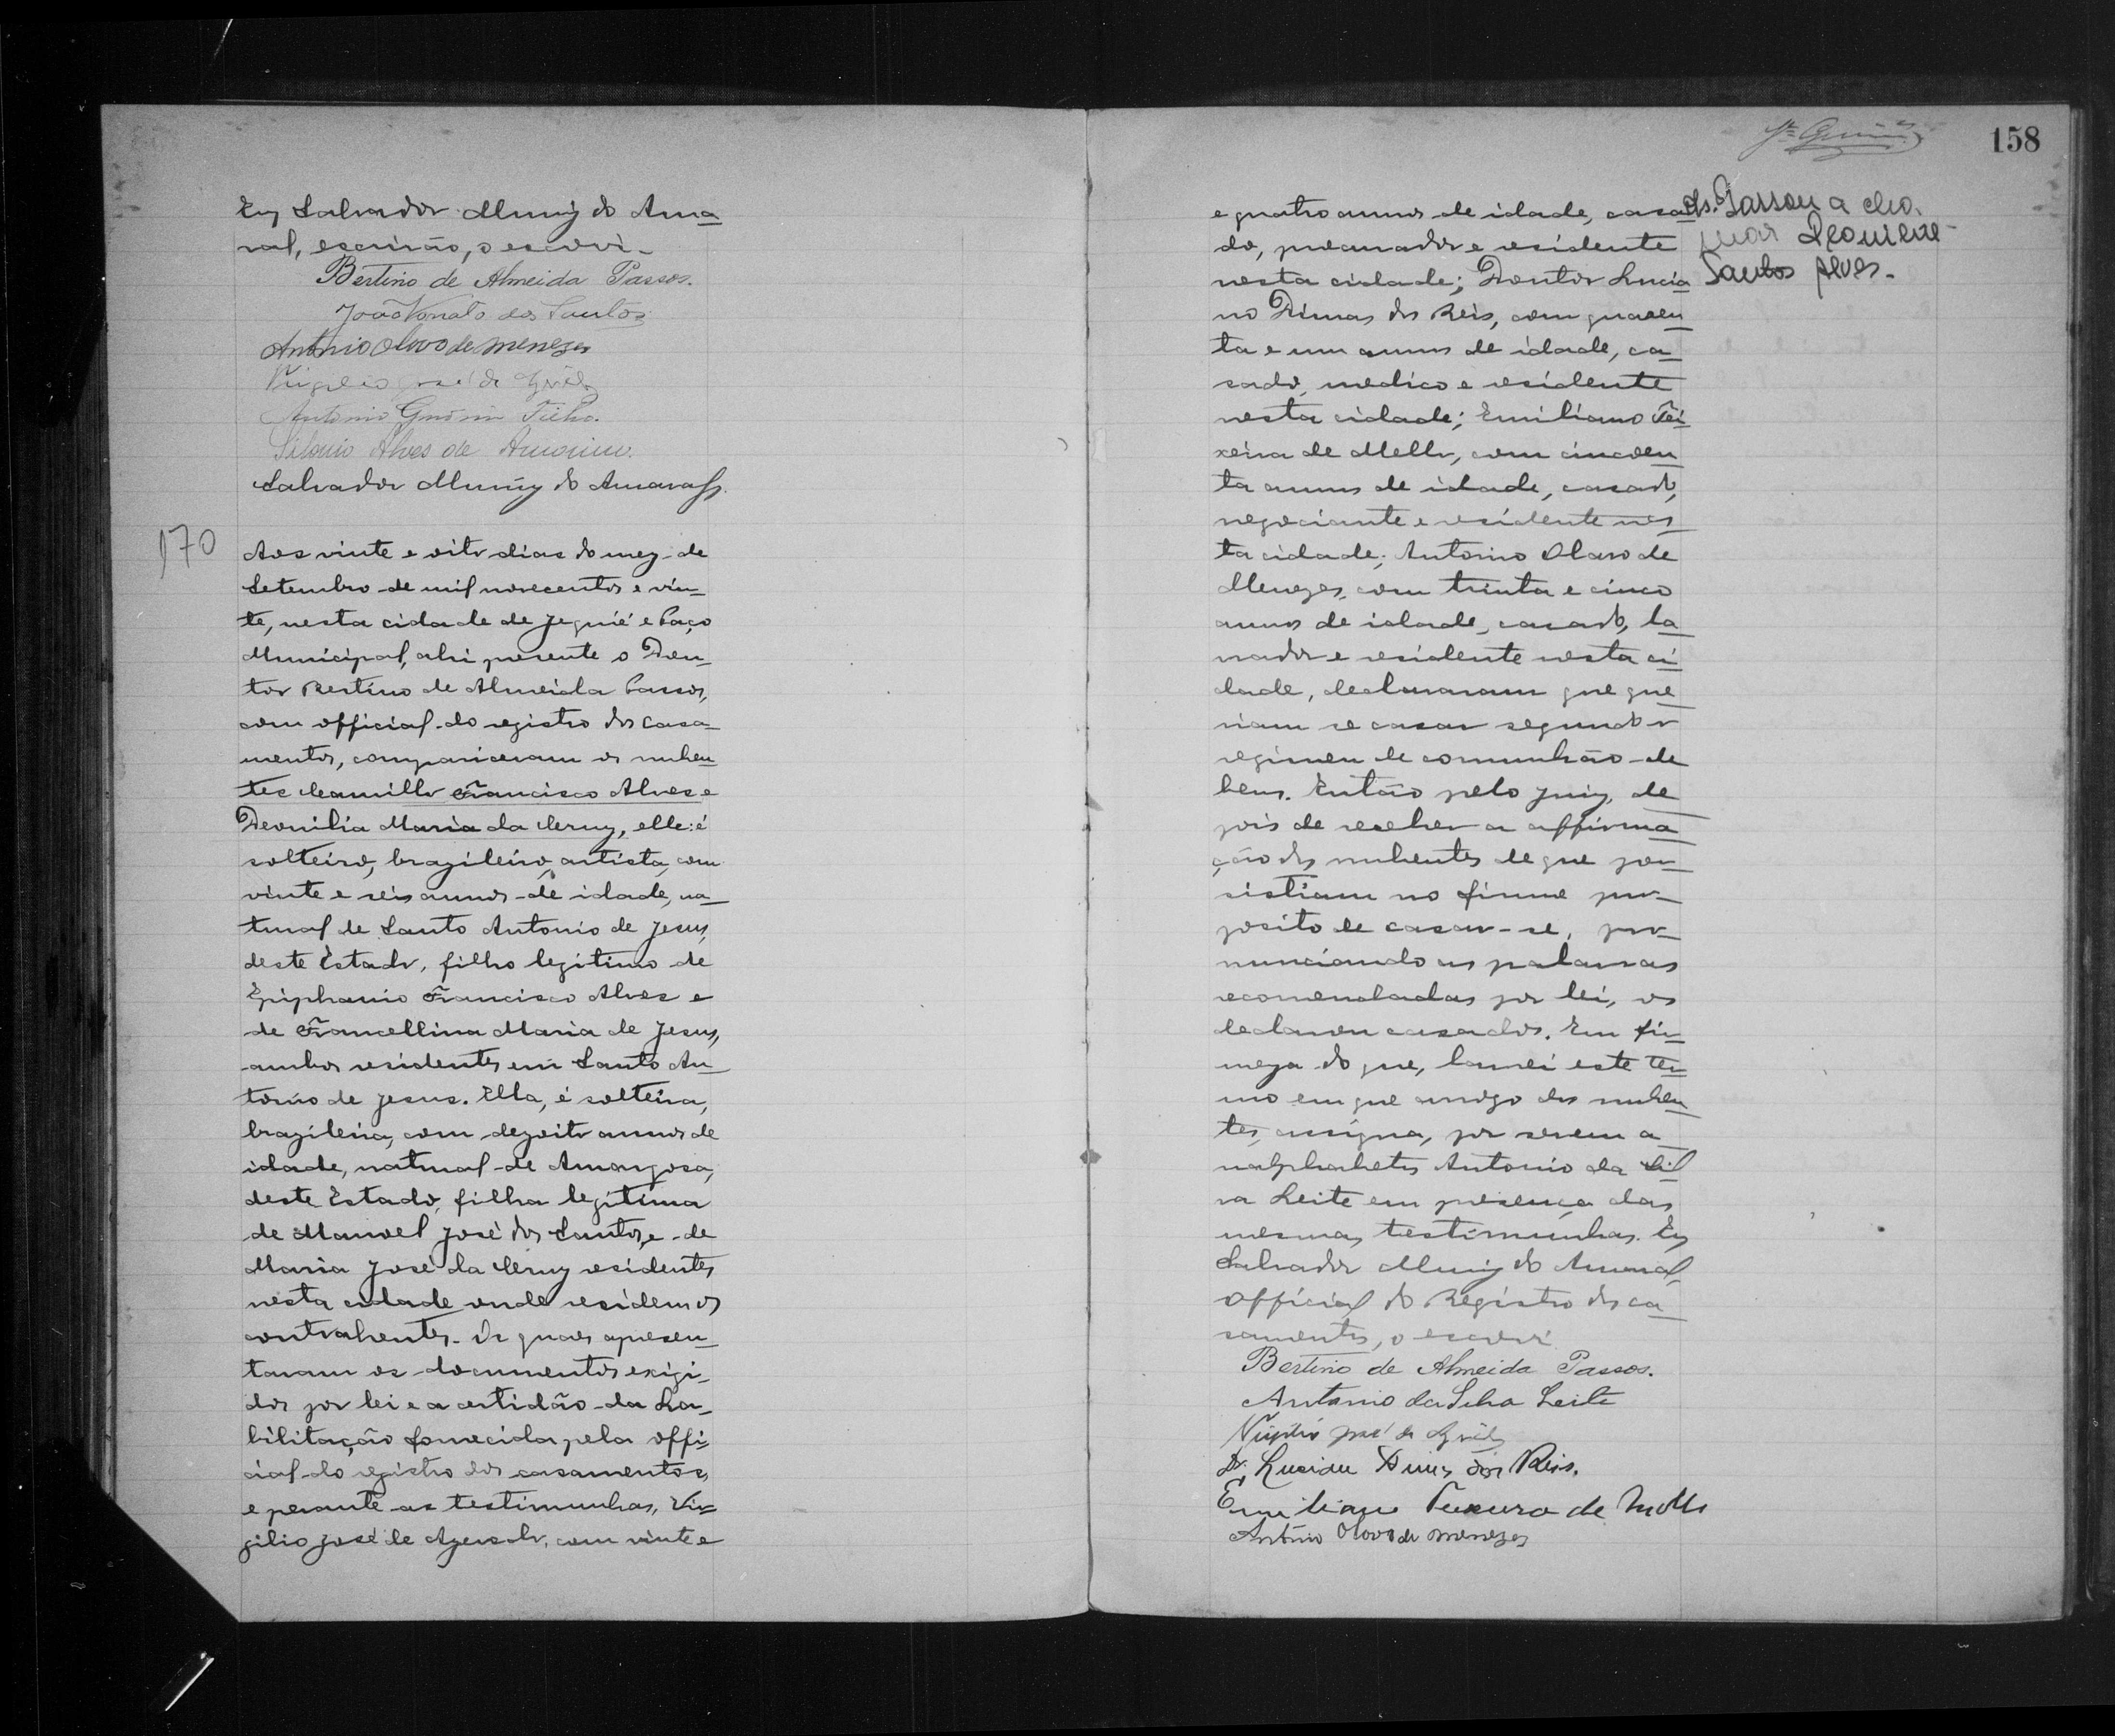 Eu Salvador Muniz do Ama
ral, escrivão, o escrevi.
Bertino de Almeida Passos.
João Nonato dos Santos
Antonio Olavo de Menezes
Virgilio José de
Antonio Filho.
Silonio Alves de Amorim.
Salvador Muniz do Amaral.
170
Aos vinte e oito dias do mez de
Setembro de mil novecentos e vin-
te, nesta cidade de Jequié e Paço
Municipal, ahi presente o Dou-
tor Bertino de Almeida Passos,
com official do registro dos casa-
mentos, compariceram os nuben
tes Camillo Francisco Alves e
Deonilia Maria da Cruz, elle é
solteiro, brazileiro, artista, com
vinte e seis annos de idade, na-
tural de Santo Antonio de Jesus,
deste Estado, filho legitimo de
Epiphanio Francisco Alves e
de Francellina Maria de Jesus,
ambos residentes em Santo An-
tonio de Jesus. Ella, é solteira,
brazileira, com dezoito annos de
idade, natural de Amargosa,
deste Estado, filha legitima
de Manoel José dos Santos, e de
Maria José da Cruz residentes
nesta cidade onde residem os
contrahentes. Os quaes apresen-
taram os documentos exigi-
dos por lei e a certidão da ha-
bilitação fornecida pelo offi-
cial do registro dos casamentos,
e perante as testimunhas, Vir-
gilio José de Azevedo, com vinte e
158
e quatro annos de idade, casa
do, procurador e residente
nesta cidade; Doutor Lucia
no Dimas dos Reis, com quaren
ta e um annos de idade, ca-
sado, medico e residente
nesta cidade; Emiliano Tei
xeira de Mello, com cincoen
ta annos de idade, casado,
negociante e residente nes
ta cidade; Antonio Olavo de
Menezes, com trinta e cinco
annos de idade, casado, la
vrador e residente nesta ci
dade, declararam que que
riam se casar segundo o
regimen de comunhão de
bens. Então pelo Juiz, de
pois de receber a affirma
ção dos nubentes de que per-
sistiam no firme pro-
posito de casar-se, pro-
nunciando as palavras
recomendadas por lei, os
declarou casados. Em fir-
meza do que, lavrei este ter
mo em que a rogo dos nuben
tes, assigna, por serem a
nalphabetos Antonio da Sil
va Leite em presença das
mesmas testimunhas. Eu
Salvador Muniz do Amaral,
Official do Registro dos ca
samentos, o escrevi
Bertino de Almeida Passos.
Antonio da Silva Leite
Virgilio José de
Dr. Luciano Dimas dos Reis.
Emiliano Teixeira de Mello
Antonio Olavo de Menezes
Obs. Passou a cha.
mar Deonilia
Santos Alves.